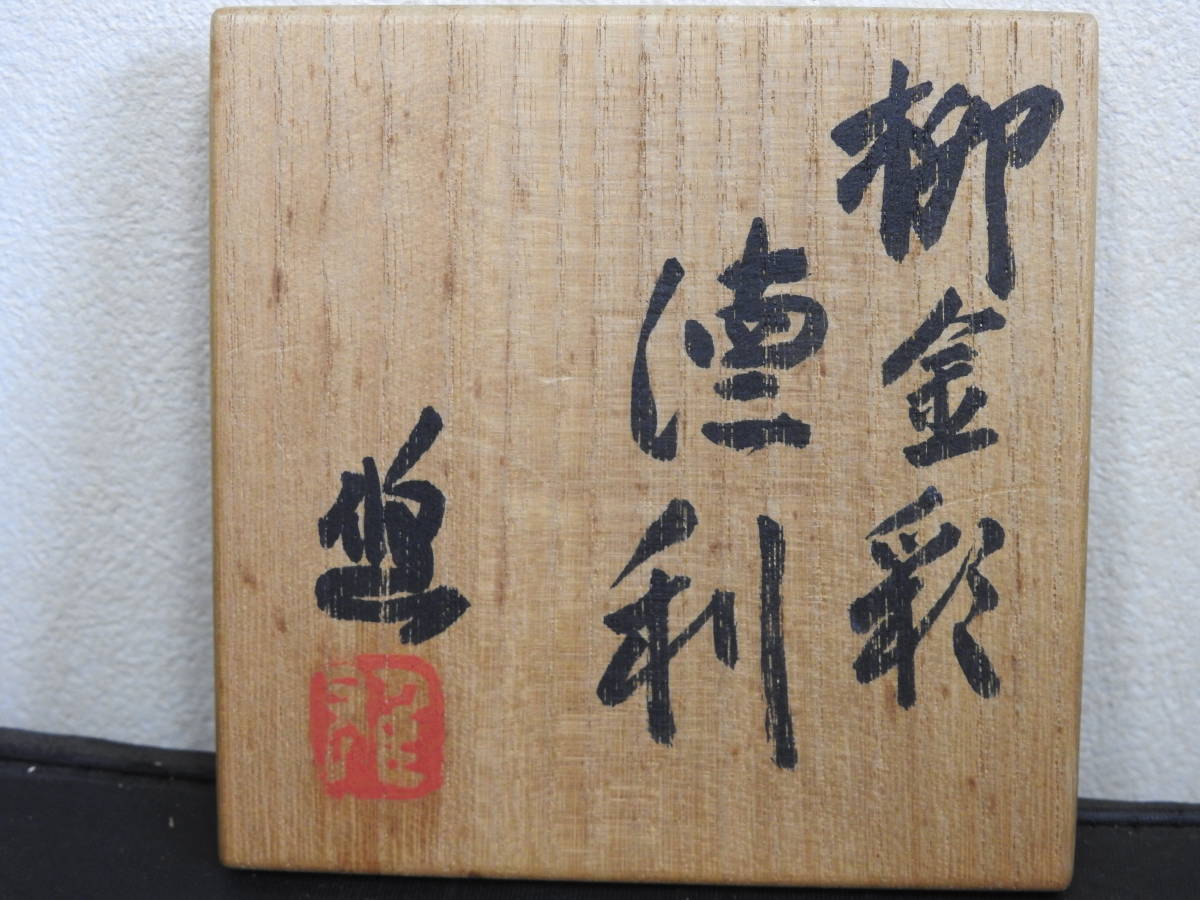 柳金彩
徳利